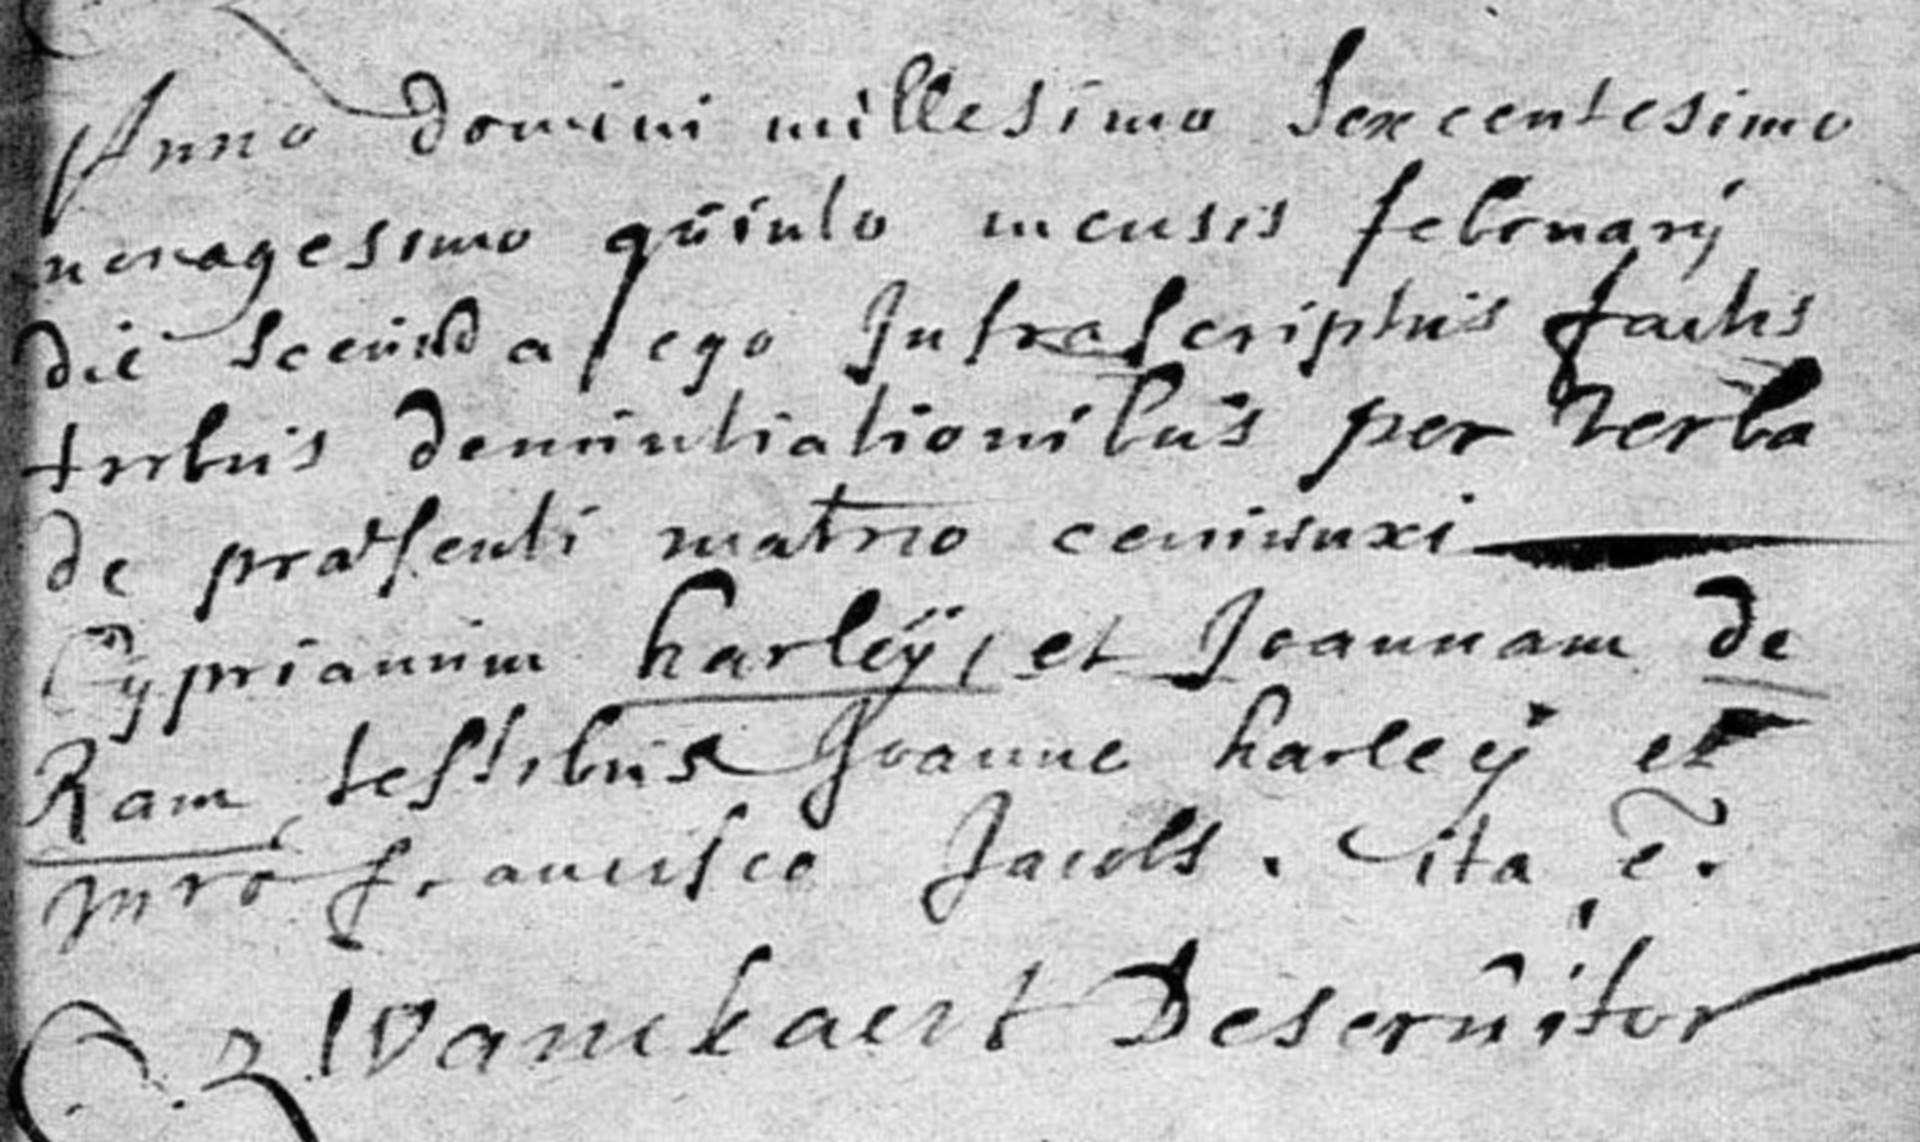 Anno domini millesimo sexcentesimo
nonagesimo quinto mensis februarij
die secunda ego Infrascriptus factis
tribus denuntiationibus per verba
de præsenti matrio coniunxi
Cyprianum harleÿ, et Joannam de
Ram testibus Joanne harleÿ et
francisco Jacobs. ita ē.
Wanckaert Deservitor